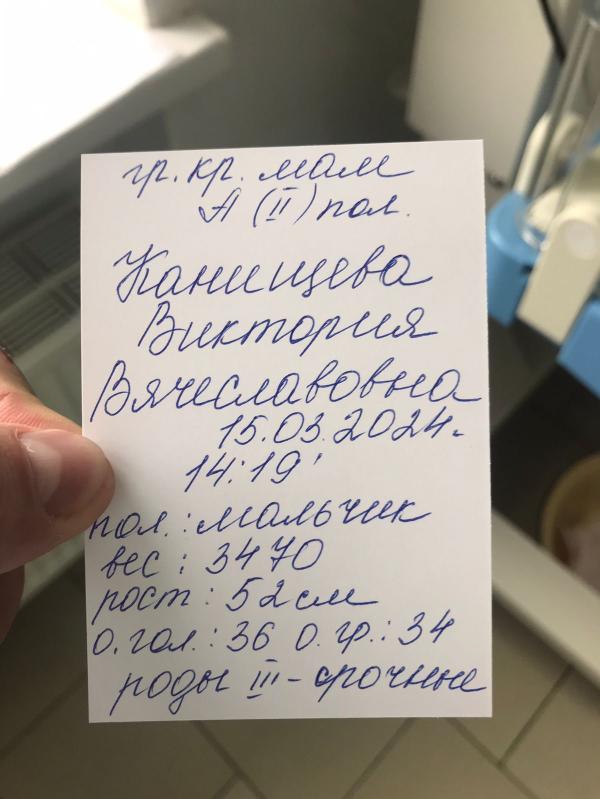 гр. кр. мам
A (II) пол.
Канищева
Виктория
Вячеславовна
15.03.2024.
14:19'
пол.: мальчик
вес: 3470
рост: 52 см
о. гол.: 36 о. гр.: 34
роды III - срочные